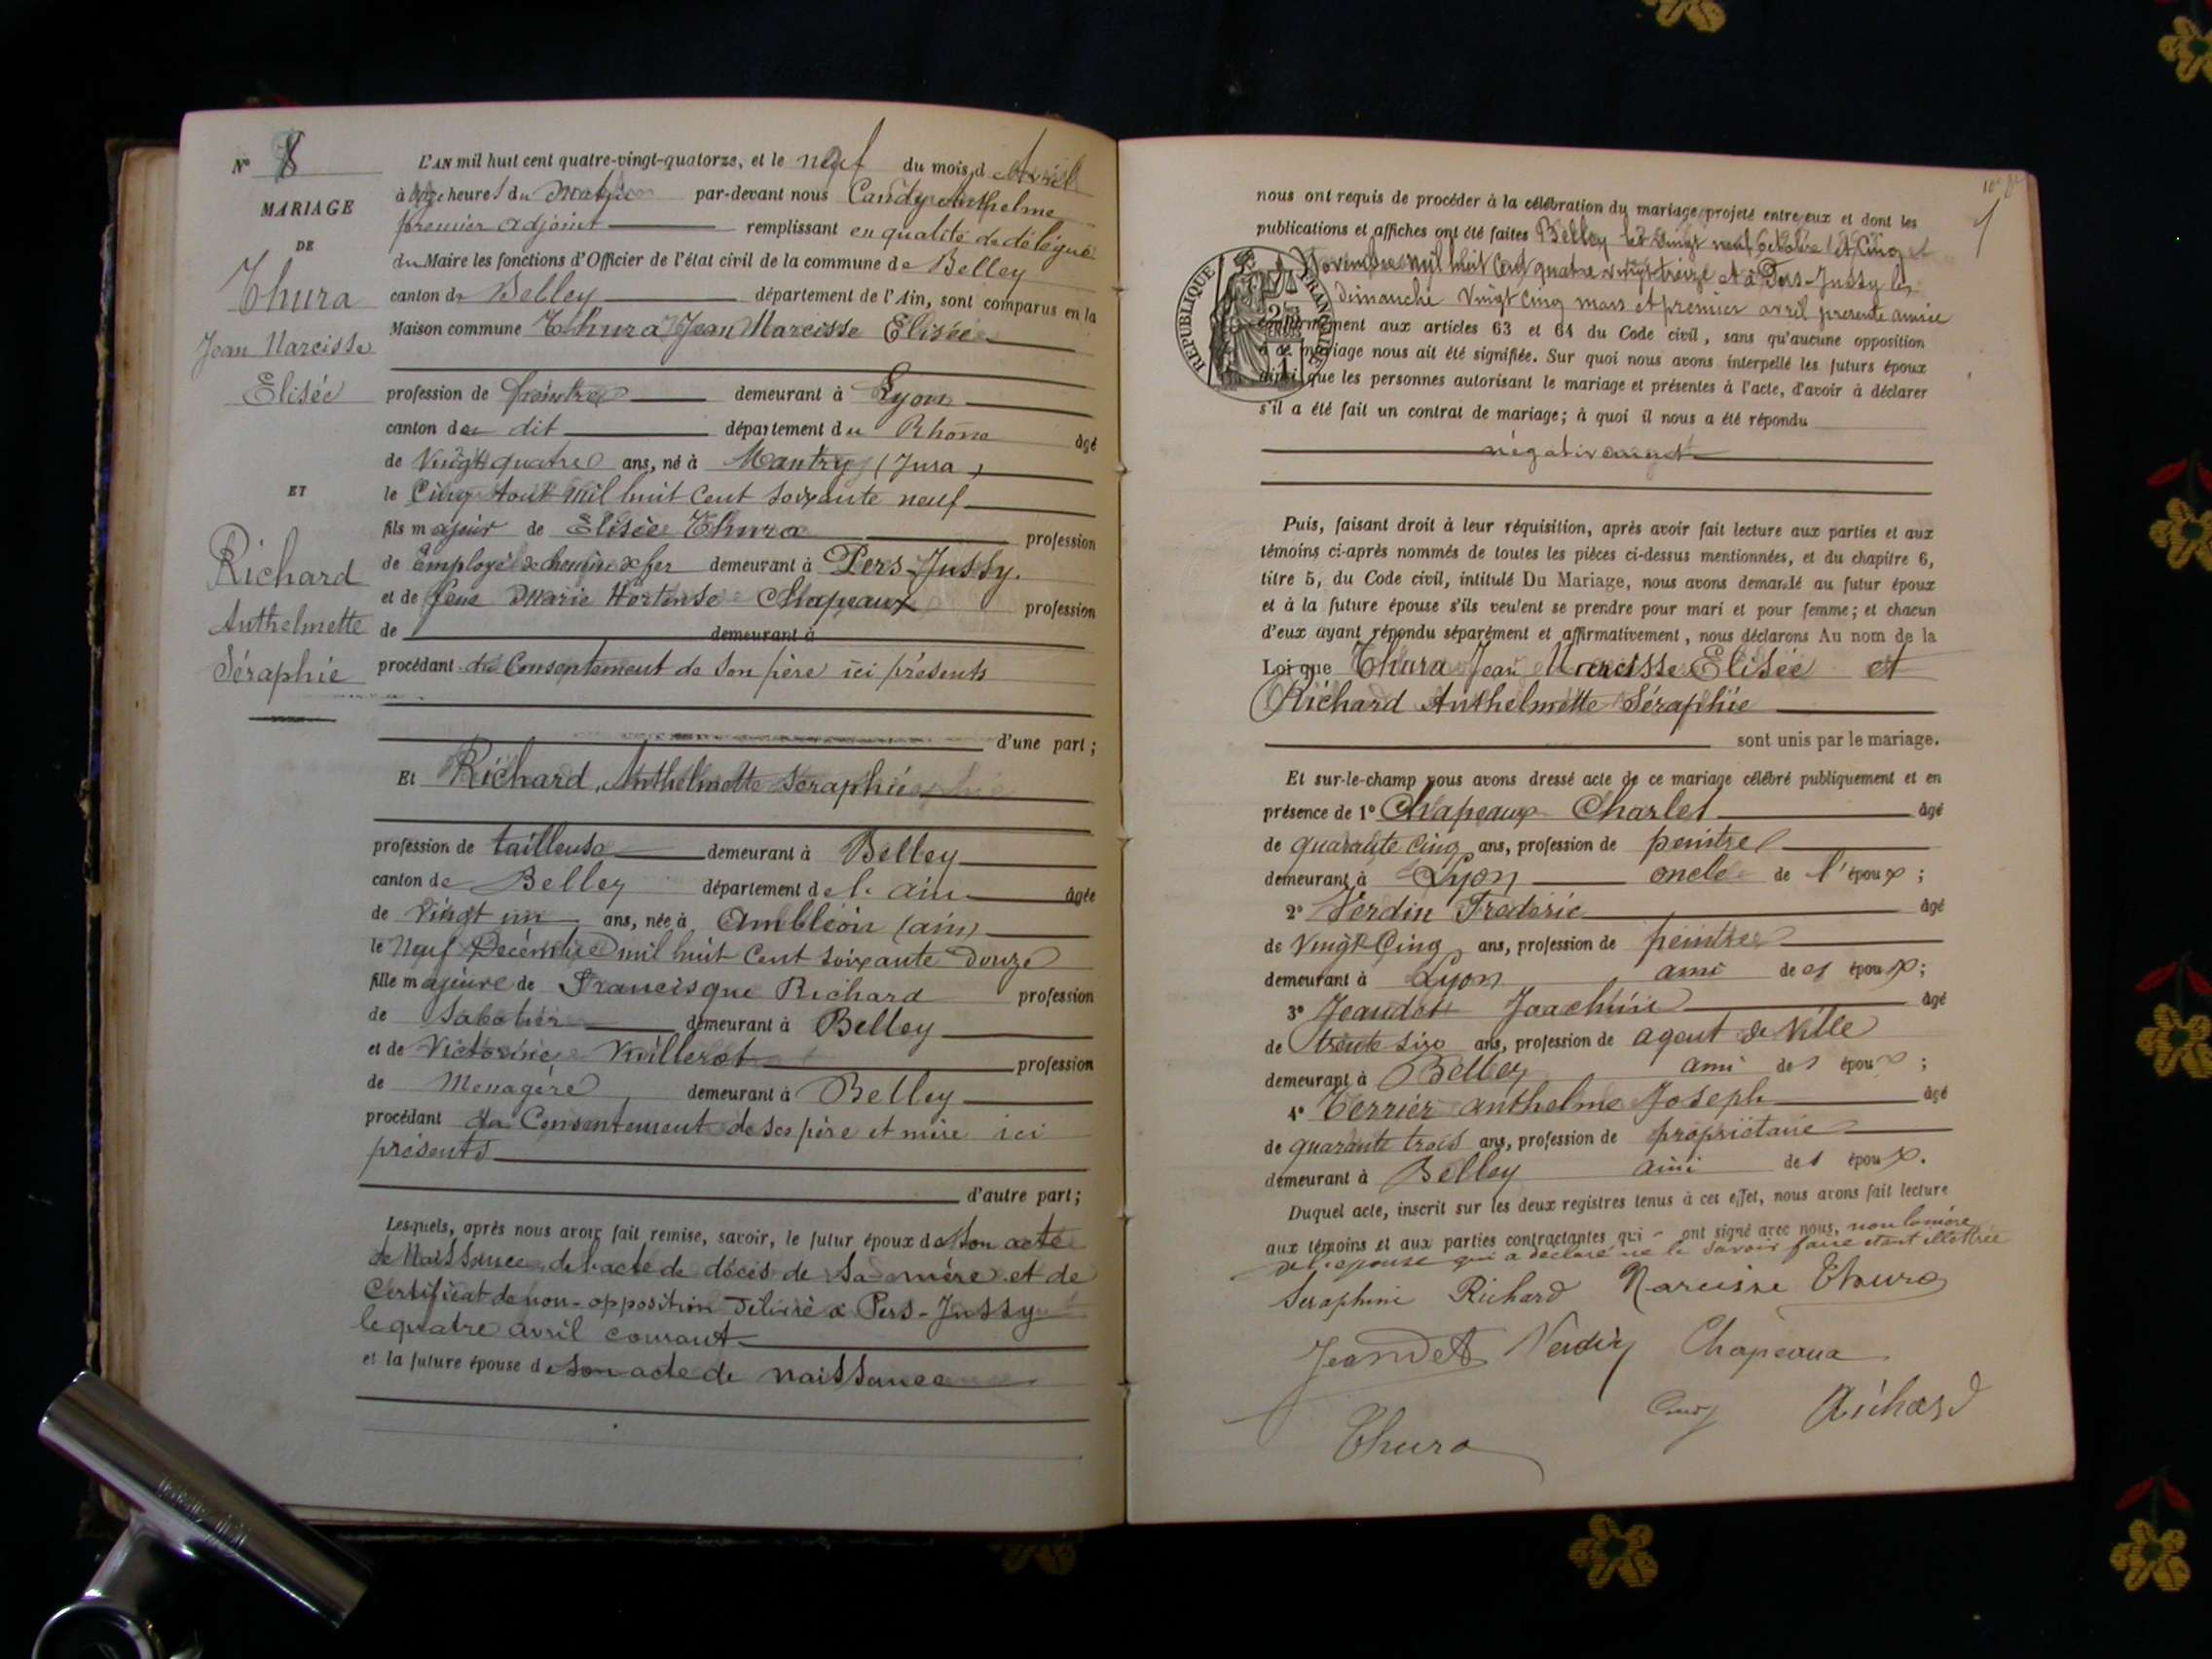 N° 8
MARIAGE
DE
Thura
Jean Narcisse
Elisée
ET
Richard
Anthelmette
Séraphie
L'AN mil huit cent quatre-vingt-quatorze, et le neuf du mois d'Avril
à onze heures du Matin par-devant nous Candy Anthelme
premier adjoint remplissant en qualité de délégué
du Maire les fonctions d'Officier de l'état civil de la commune de Belley
canton de Belley département de l'Ain, sont comparus en la
Maison commune Thura Jean Narcisse Elisée
profession de peintre demeurant à Lyon
canton du dit département du Rhône âgé
de Vingt quatre ans, né à Mantry (Jura)
le Cinq Aout mil huit Cent Soixante neuf
fils majeur de Elisée Thura profession
de Employé de chemin de fer demeurant à Pers-Jussy.
et de feue Marie Hortense Chapeaux profession
de demeurant à
procédant du Consentement de Son père ici présents
d'une part;
Et Richard, Anthelmette Séraphie
profession de tailleuse demeurant à Belley
canton de Belley département de l'ain âgée
de Vingt un ans, née à Ambléon (ain)
le Neuf Décembre mil huit Cent Soixante Douze
fille majeure de Francisque Richard profession
de Sabotier demeurant à Belley
et de Victorine Vuillerot profession
de Menagère demeurant à Belley
procédant du Consentement de ses père et mère ici
présents
d'autre part;
Lesquels, après nous avoir fait remise, savoir, le futur époux de Son acte
de Naissance, de l'acte de décès de Sa mère et de
Certificat de non-opposition Délivré à Pers-Jussy
le quatre avril courant
et la future épouse de Son acte de naissance
nous ont requis de procéder à la célébration du mariage projeté entre eux et dont les
publications et affiches ont été faites Belley les Vingt neuf Octobre et Cinq
Novembre mil huit Cent quatre vingt treize et à Pers-Jussy les
dimanche Vingt Cinq mars et premier avril presente année
RÉPUBLIQUE FRANÇAISE
conformément aux articles 63 et 64 du Code civil, sans qu'aucune opposition
à ce mariage nous ait été signifiée. Sur quoi nous avons interpellé les futurs époux
ainsi que les personnes autorisant le mariage et présentes à l'acte, d'avoir à déclarer
s'il a été fait un contrat de mariage; à quoi il nous a été répondu
négativement
Puis, faisant droit à leur réquisition, après avoir fait lecture aux parties et aux
témoins ci-après nommés de toutes les pièces ci-dessus mentionnées, et du chapitre 6,
titre 5, du Code civil, intitulé Du Mariage, nous avons demandé au futur époux
et à la future épouse s'ils veulent se prendre pour mari et pour femme; et chacun
d'eux ayant répondu séparément et affirmativement, nous déclarons Au nom de la
Loi que Thura Jean Narcisse Elisée et
Richard Anthelmette Séraphie
sont unis par le mariage.
Et sur-le-champ nous avons dressé acte de ce mariage célébré publiquement et en
présence de 1° Chapeaux Charles âgé
de quarante Cinq ans, profession de peintre
demeurant à Lyon oncle de l'époux;
2° Verdin Frederic âgé
de Vingt Cinq ans, profession de peintre
demeurant à Lyon ami des époux;
3° Jeandet Joachim âgé
de trente Six ans, profession de agent de Ville
demeurant à Belley ami des époux;
4° Terrier anthelme Joseph âgé
de quarante trois ans, profession de propriétaire
demeurant à Belley ami des époux.
Duquel acte, inscrit sur les deux registres tenus à cet effet, nous avons fait lecture
aux témoins et aux parties contractantes qui ont signé avec nous, non la mère
de l'epouse qui a déclaré ne le Savoir faire étant illettrée
Seraphine Richard Narcisse Thura
Jeandet Verdin Chapeaux
Candy Richard
Thura